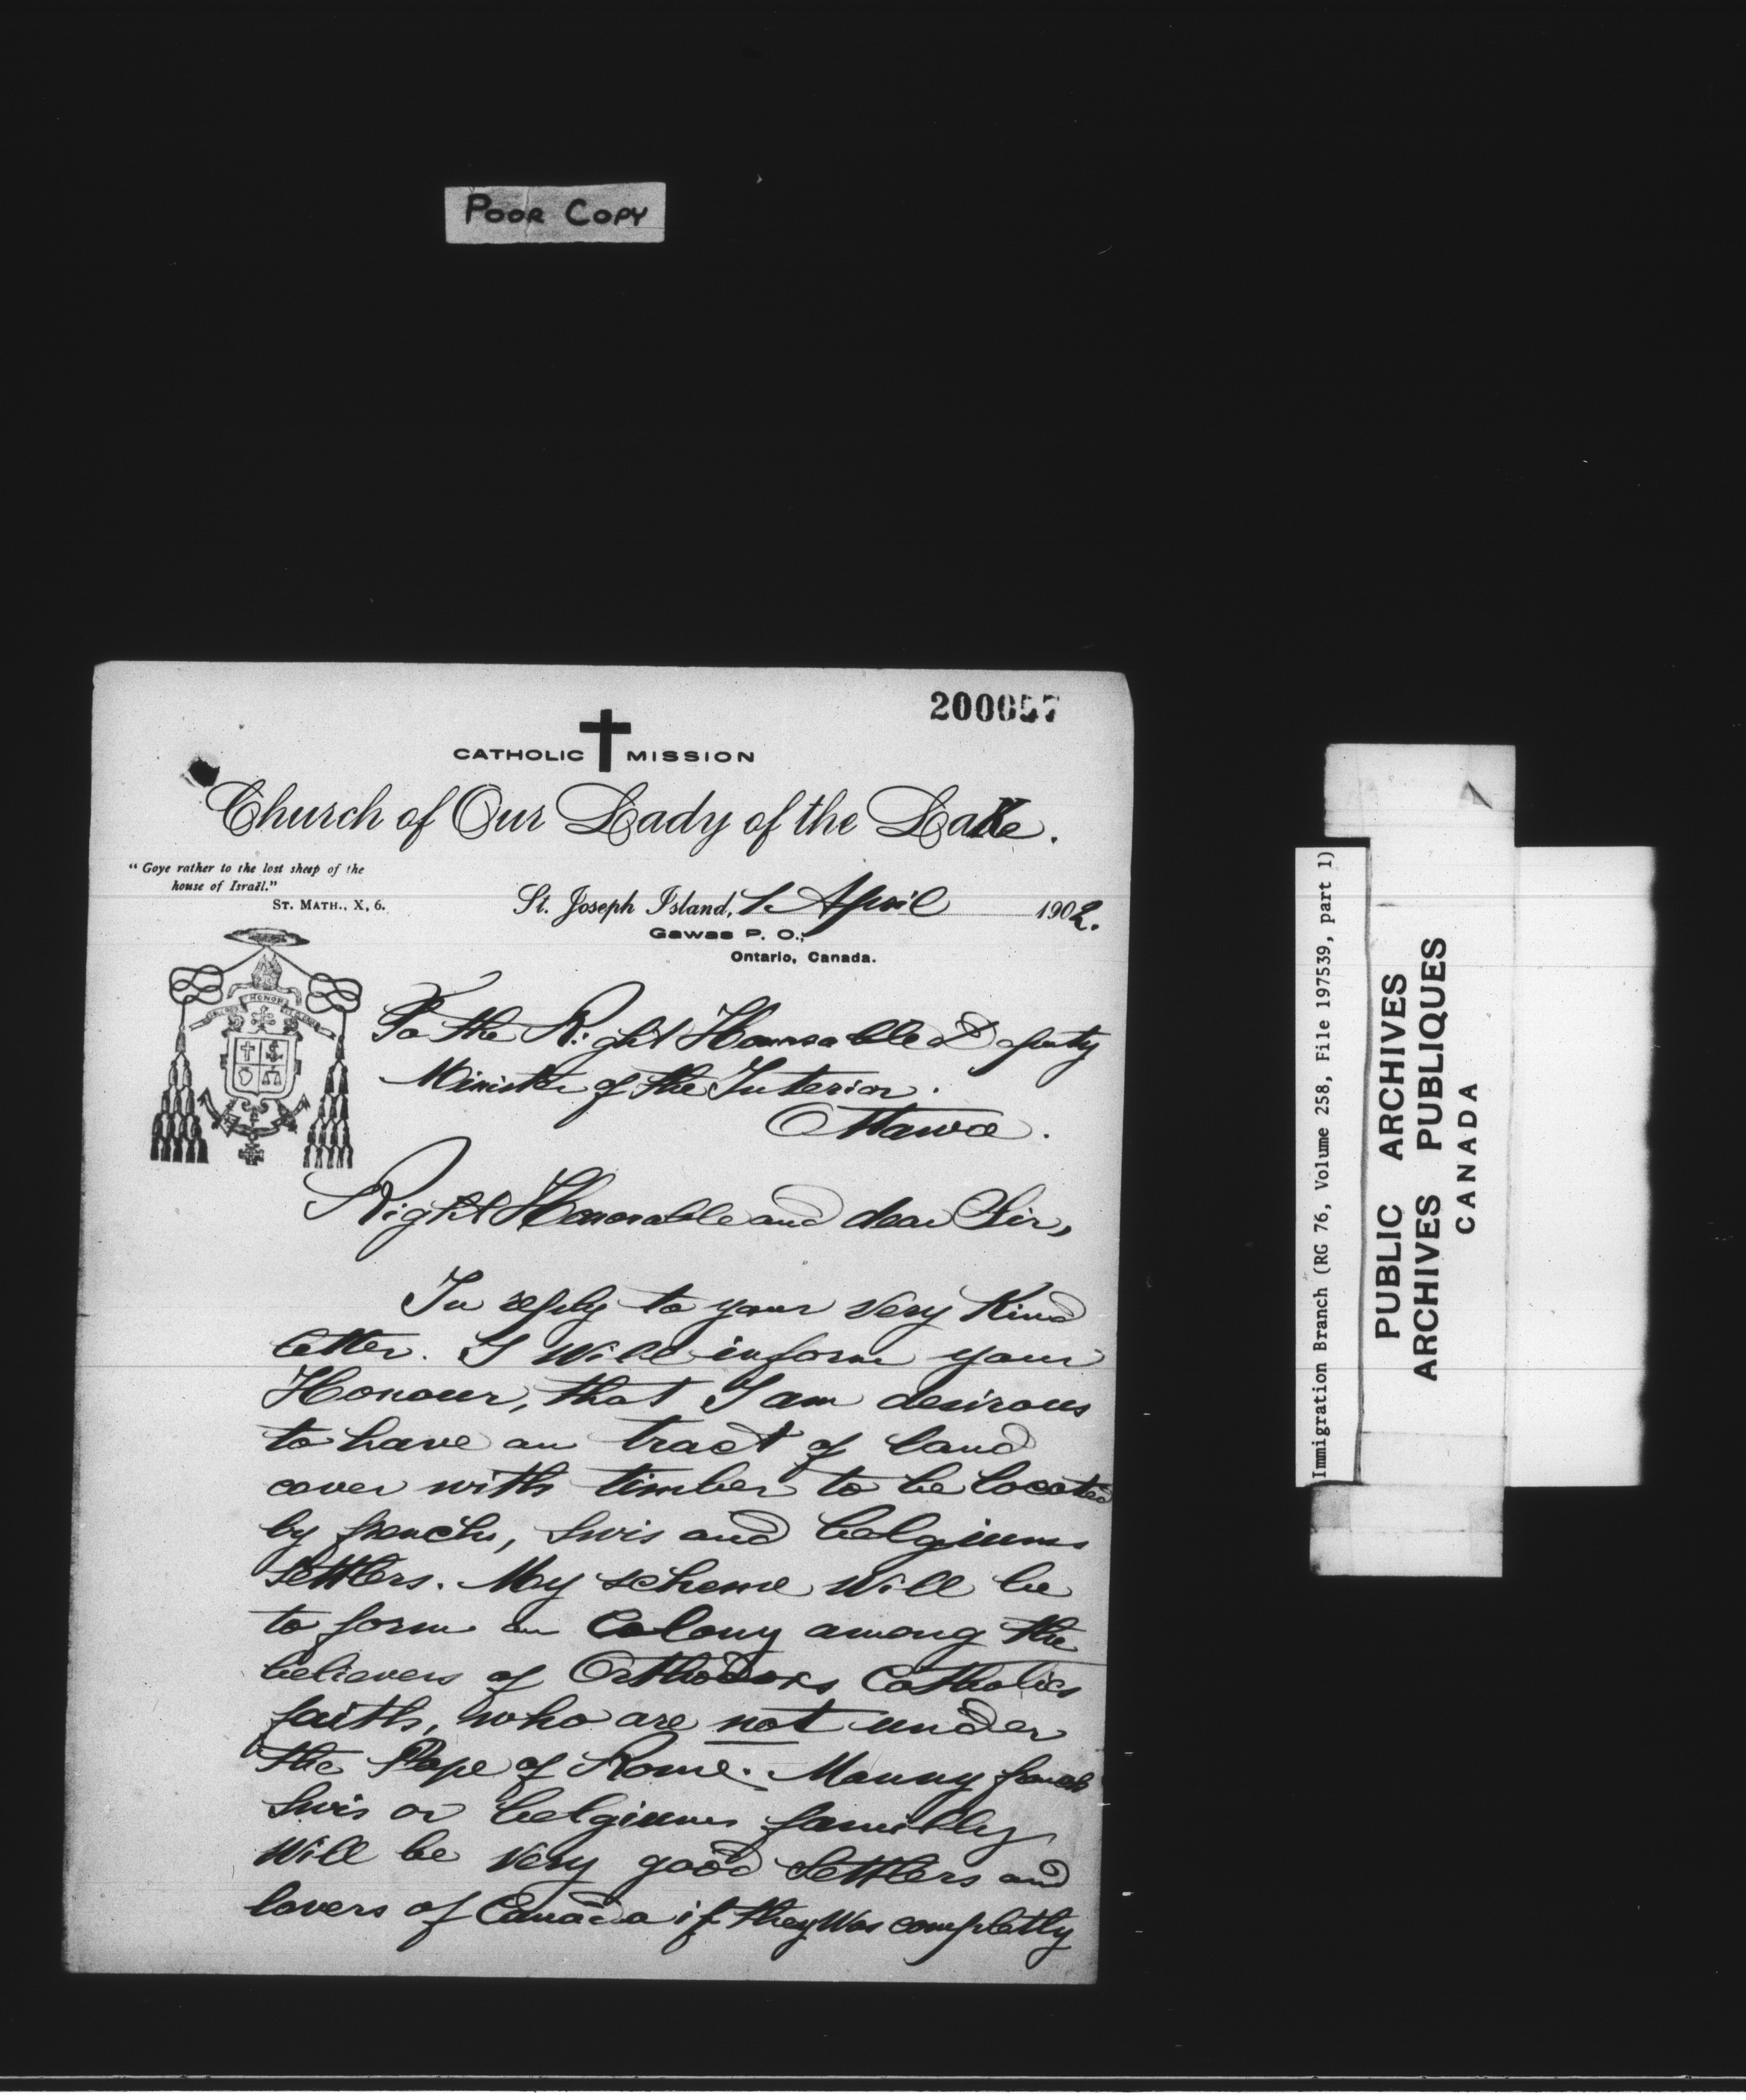 POOR COPY
200057
CATHOLIC MISSION
Church of Our Lady of the Lake.
"Goye rather to the lost sheep of the
house of Israël."
ST. MATH., X, 6.
St. Joseph Island, 1. April 1902.
Gawas P. O.,
Ontario, Canada.
HONOR
To the Right Honorable Deputy
Minister of the Interior.
Ottawa.
Right Honorable and dear Sir,
In reply to your very Kind
letter. I Will inform your
Honour, that I am desirous
to have an tract of land
cover with timber to be located
by frenchs, Swis and belgiums
Settlers. My scheme Will be
to form an Colony among the
believers of Orthodoxs Catholics
faith, who are not under
the Pope of Rome. Manny french
Swis or belgiums familly
Will be very good Settlers and
lovers of Canada if they Was completly
Immigration Branch (RG 76, Volume 258, File 197539, part 1)
PUBLIC ARCHIVES
ARCHIVES PUBLIQUES
CANADA